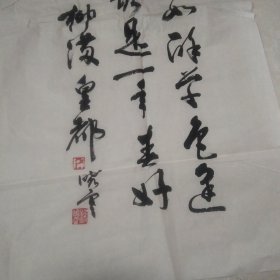 如酥草色遥
是一年春好
柳满皇都